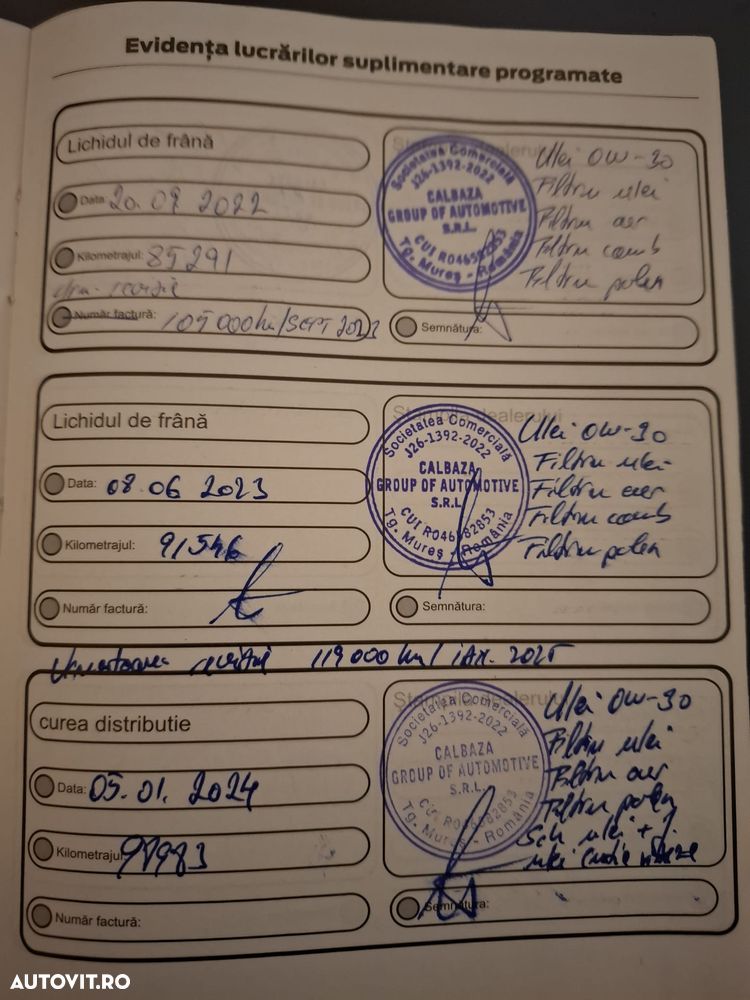 Evidența lucrărilor suplimentare programate
Lichidul de frână
Data: 20.09 2022
Kilometrajul: 85291
Număr factură: 105 000 km/SEPT 2023
Societatea Comercială
J26-1392-2022
CALBAZA
GROUP OF AUTOMOTIVE
S.R.L.
CUI RO46582853
Tg. Mureș - România
Ulei 0W-30
Filtru ulei
Filtru aer
Filtru comb
Filtru polen
Semnătura:
Lichidul de frână
Data: 08.06 2023
Kilometrajul: 91546
Număr factură:
Ștampila dealerului
Societatea Comercială
J26-1392-2022
CALBAZA
GROUP OF AUTOMOTIVE
S.R.L.
CUI RO46582853
Tg. Mureș - România
Ulei 0W-30
Filtru ulei
Filtru aer
Filtru comb
Filtru polen
Semnătura:
Urmatoarea revizie 119 000 km/ IAN. 2025
curea distributie
Data: 05.01.2024
Kilometrajul: 98983
Număr factură:
Societatea Comercială
J26-1392-2022
CALBAZA
GROUP OF AUTOMOTIVE
S.R.L.
CUI RO46582853
Tg. Mureș - România
Ulei 0W-30
Filtru ulei
Filtru aer
Filtru polen
Sch ulei + f.
ulei cutie viteze
Semnătura:
AUTOVIT.RO